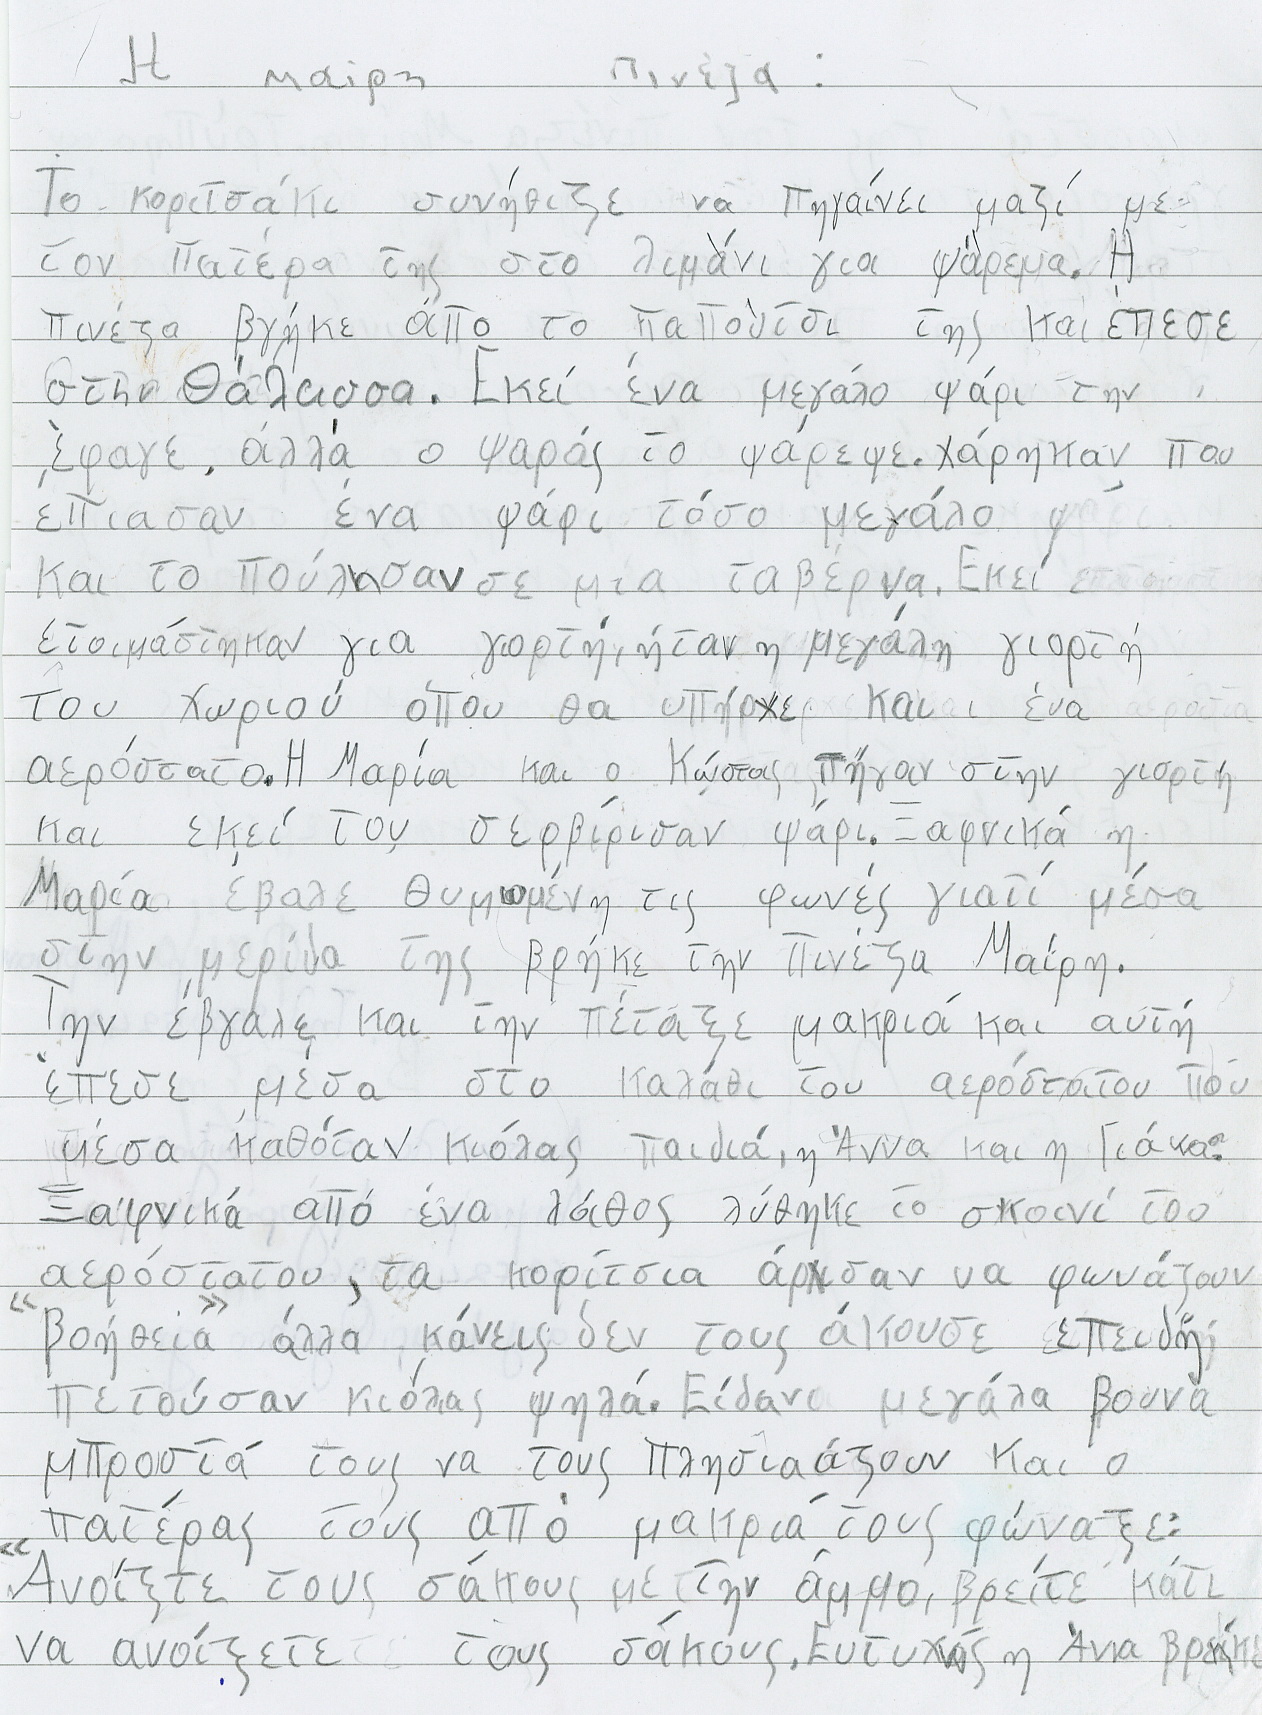 Η μαίρη πινέζα:
Το κοριτσάκι συνήθιζε να πηγαίνει μαζί με
τον πατέρα της στο λιμάνι για ψάρεμα. Η
πινέζα βγήκε άπο το παπούτσι της και έπεσε
στην θάλασσα. Εκεί ένα μεγάλο ψάρι την
έφαγε, άλλα ο ψαράς το ψάρεψε. χάρηκαν που
έπιασαν ένα ψάρι τόσο μεγάλο
και το πούλησαν σε μια ταβέρνα. Εκεί
ετοιμάστηκαν για γιορτή, ήταν η μεγάλη γιορτή
του χωριού όπου θα υπήρχε και ένα
αερόστατο. Η Μαρία και ο Κώστας πήγαν στην γιορτή
και εκεί του σερβίρισαν ψάρι. Ξαφνικά η
Μαρία έβαλε θυμωμένη τις φωνές γιατί μέσα
στην μερίδα της βρήκε την πινέζα Μαίρη.
Την έβγαλε και την πέταξε μακριά και αυτή
έπεσε μέσα στο καλάθι του αερόστατου που
μέσα καθόταν κιόλας παιδιά, η Άννα και η
Ξαφνικά από ένα λάθος λύθηκε το σκοινί του
αερόστατου, τα κορίτσια άρχισαν να φωνάζουν
«βοήθεια» άλλα κάνεις δεν τους άκουσε επειδή
πετούσαν κιόλας ψηλά. Είδαν μεγάλα βουνά
μπροστά τους να τους πλησιαάζουν και ο
πατέρας τους από μακριά τους φώναξε:
«Ανοίξτε τους σάκους με την άμμο, βρείτε κάτι
να ανοίξετε τους σάκους. Ευτυχώς η βρήκε